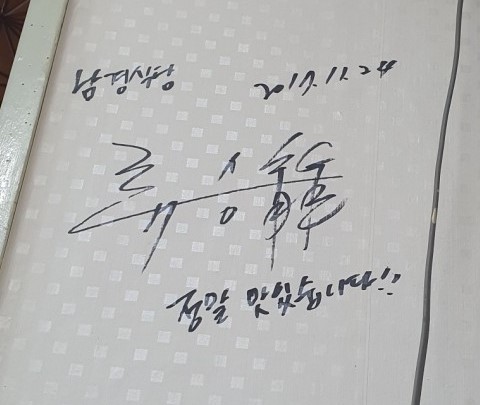 남경식당 2017.11.24
류승龍
정말 맛있습니다!!